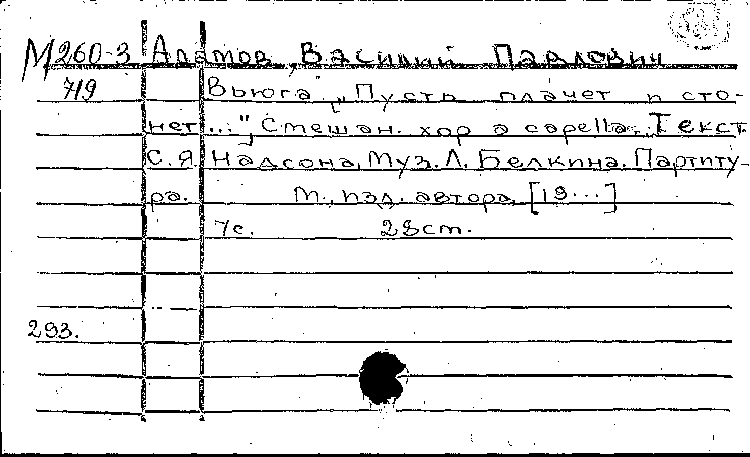 М260-3 Алатов, Василий Павлович
719 Вьюга "Пусть плачет и сто-
нет...", Смешан. хор a capella. Текст
С.Я. Надсона, Муз. Л. Белкина. Партиту-
ра. М., изд. автора, [19...]
7с. 28см.
293.